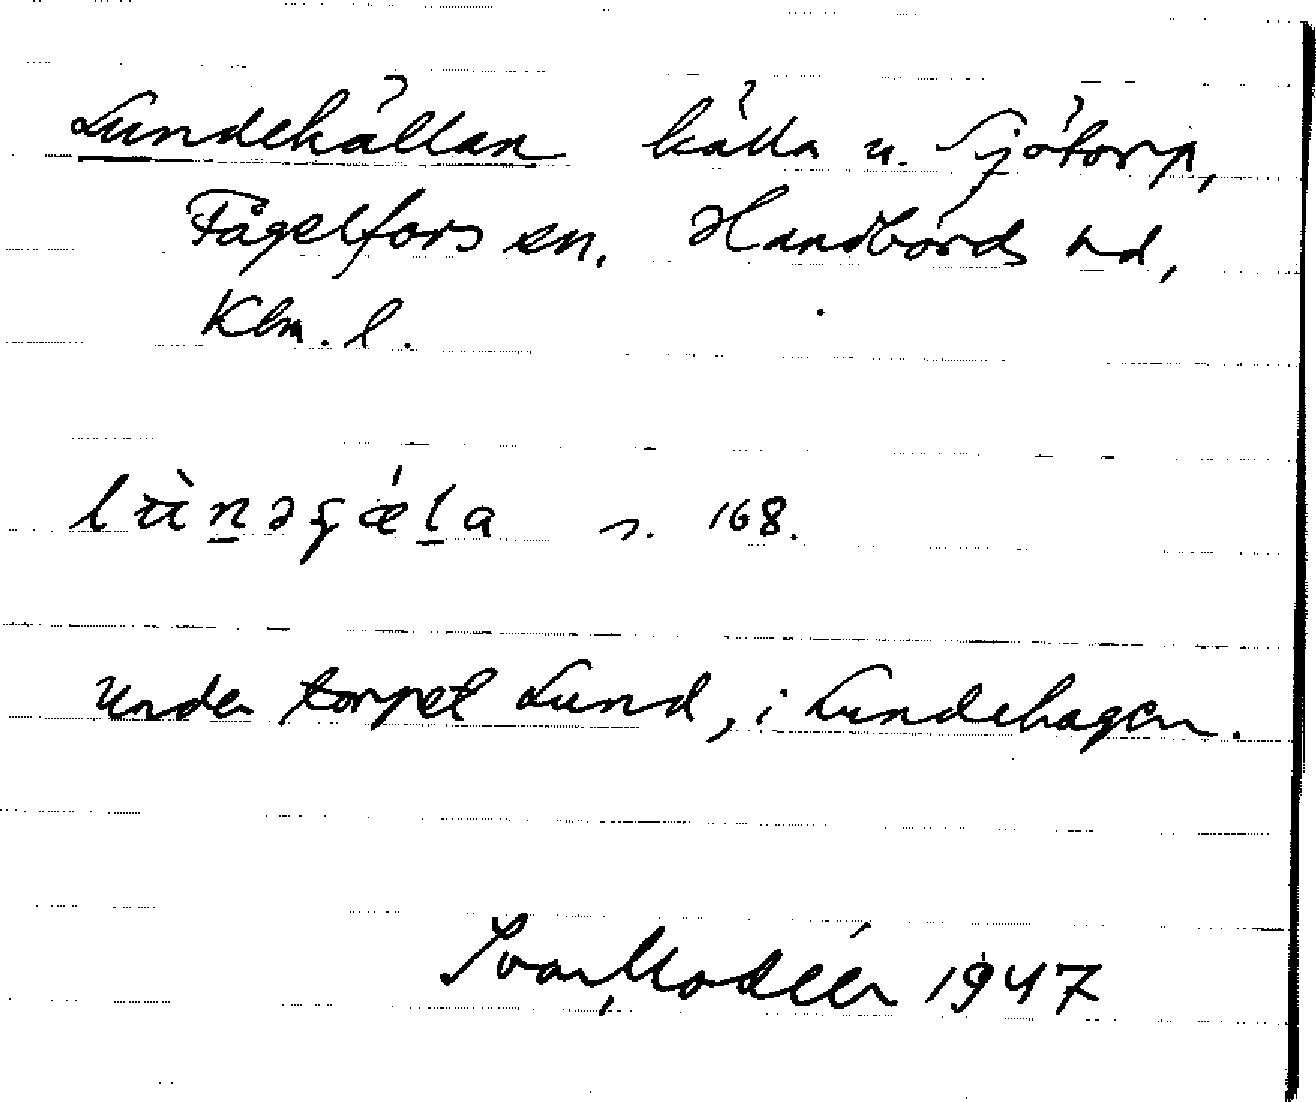 Lundekällan källa u. Sjötorp,
Fågelfors sn. Handbörds hd,
Klm. l.
s. 168.
Under torpet Lund, i Lundehagen.
Ivar Modéer 1947